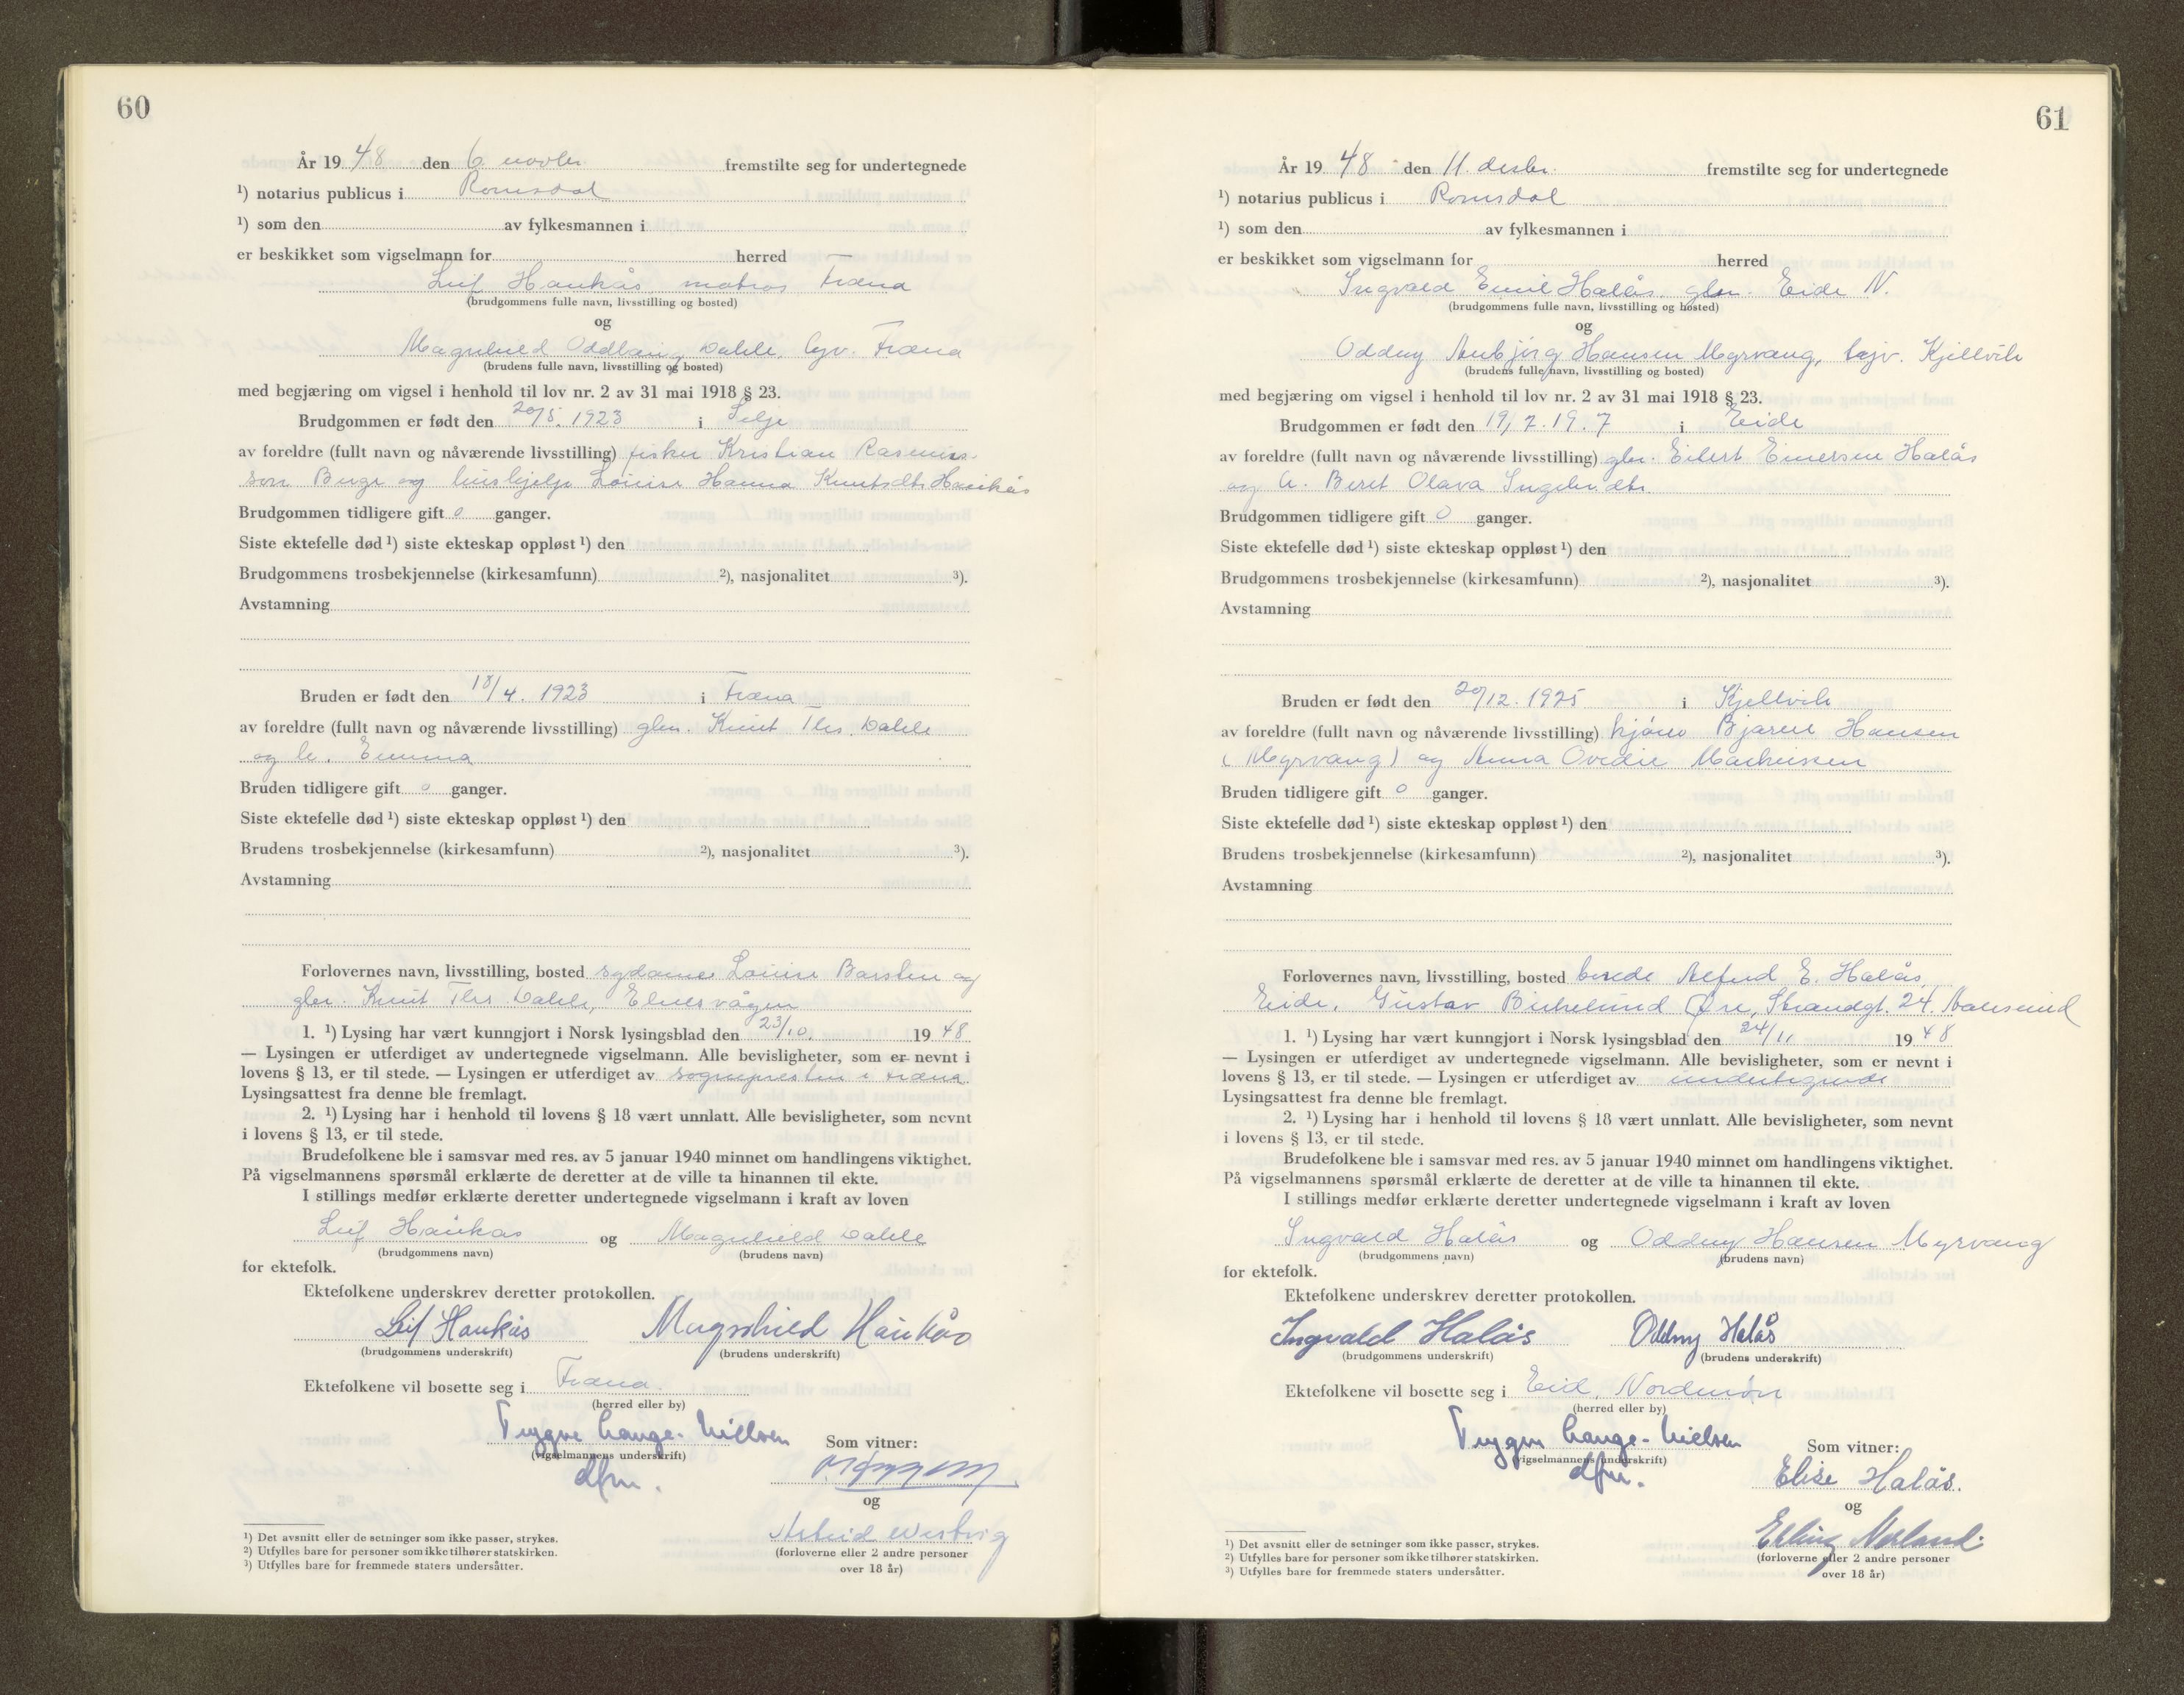 60
År 19 48 den 6 novbr. fremstilte seg for undertegnede
¹) notarius publicus i Romsdal
¹) som den av fylkesmannen i
er beskikket som vigselmann for herred
Leif Haukås matros Fræna
(brudgommens fulle navn, livsstilling og bosted)
og
Magnhild Oddlaug Dahle, Fræna
(brudens fulle navn, livsstilling og bosted)
med begjæring om vigsel i henhold til lov nr. 2 av 31 mai 1918 § 23.
Brudgommen er født den 20/5. 1923 i Selje
av foreldre (fullt navn og nåværende livsstilling) fisker Kristian Rasmus-
son Berge og hushjelp Louise Hanna Knutsdtr Haukås
Brudgommen tidligere gift 0 ganger.
Siste ektefelle død ¹) siste ekteskap oppløst ¹) den
Brudgommens trosbekjennelse (kirkesamfunn) ²), nasjonalitet ³).
Avstamning
Bruden er født den 18/4. 1923 i Fræna
av foreldre (fullt navn og nåværende livsstilling) gbr. Knut Ths. Dahle
og h. Emma
Bruden tidligere gift 0 ganger.
Siste ektefelle død ¹) siste ekteskap oppløst ¹) den
Brudens trosbekjennelse (kirkesamfunn) ²), nasjonalitet ³).
Avstamning
Forlovernes navn, livsstilling, bosted sydame Louise Barsten og
gbr. Knut Ths Dahle, Elnesvågen
1. ¹) Lysing har vært kunngjort i Norsk lysingsblad den 23/10. 19 48
— Lysingen er utferdiget av undertegnede vigselmann. Alle bevisligheter, som er nevnt i
lovens § 13, er til stede. — Lysingen er utferdiget av sognepresten i Fræna.
Lysingsattest fra denne ble fremlagt.
2. ¹) Lysing har i henhold til lovens § 18 vært unnlatt. Alle bevisligheter, som nevnt
i lovens § 13, er til stede.
Brudefolkene ble i samsvar med res. av 5 januar 1940 minnet om handlingens viktighet.
På vigselmannens spørsmål erklærte de deretter at de ville ta hinannen til ekte.
I stillings medfør erklærte deretter undertegnede vigselmann i kraft av loven
Leif Haukas og Magnhild Dahle
(brudgommens navn) (brudens navn)
for ektefolk.
Ektefolkene underskrev deretter protokollen.
Leif Haukås Magnhild Haukås
(brudgommens underskrift) (brudens underskrift)
Ektefolkene vil bosette seg i Fræna.
(herred eller by)
Trygve Lange-Nielsen
(vigselmannens underskrift) Som vitner:
dfm.
og
Astrid
(forloverne eller 2 andre personer
over 18 år)
¹) Det avsnitt eller de setninger som ikke passer, strykes.
²) Utfylles bare for personer som ikke tilhører statskirken.
³) Utfylles bare for fremmede staters undersåtter.
61
År 19 48 den 11. desbr. fremstilte seg for undertegnede
¹) notarius publicus i Romsdal
¹) som den av fylkesmannen i
er beskikket som vigselmann for herred
Ingvald Emil Halås. gbr. Eide N.
(brudgommens fulle navn, livsstilling og bosted)
og
Oddny Annbjørg Hansen Myrvang, Kjelvik
(brudens fulle navn, livsstilling og bosted)
med begjæring om vigsel i henhold til lov nr. 2 av 31 mai 1918 § 23.
Brudgommen er født den 19/7. 19.7 i Eide
av foreldre (fullt navn og nåværende livsstilling) gbr. Eilert Einersen Halås
og h. Beret Olava
Brudgommen tidligere gift 0 ganger.
Siste ektefelle død ¹) siste ekteskap oppløst ¹) den
Brudgommens trosbekjennelse (kirkesamfunn) ²), nasjonalitet ³).
Avstamning
Bruden er født den 20/12. 1925 i Kjellvik
av foreldre (fullt navn og nåværende livsstilling) Bjarne Hansen
(Myrvang) og Anna Ovedie
Bruden tidligere gift 0 ganger.
Siste ektefelle død ¹) siste ekteskap oppløst ¹) den
Brudens trosbekjennelse (kirkesamfunn) ²), nasjonalitet ³).
Avstamning
Forlovernes navn, livsstilling, bosted Alfred E. Halås,
Eide, Gustav Birkelund Øre, Strandgt. 24. Aalesund
1. ¹) Lysing har vært kunngjort i Norsk lysingsblad den 24/11 19 48
— Lysingen er utferdiget av undertegnede vigselmann. Alle bevisligheter, som er nevnt i
lovens § 13, er til stede. — Lysingen er utferdiget av undertegnede
Lysingsattest fra denne ble fremlagt.
2. ¹) Lysing har i henhold til lovens § 18 vært unnlatt. Alle bevisligheter, som nevnt
i lovens § 13, er til stede.
Brudefolkene ble i samsvar med res. av 5 januar 1940 minnet om handlingens viktighet.
På vigselmannens spørsmål erklærte de deretter at de ville ta hinannen til ekte.
I stillings medfør erklærte deretter undertegnede vigselmann i kraft av loven
Ingvald Halås og Oddny Hansen Myrvang
(brudgommens navn) (brudens navn)
for ektefolk.
Ektefolkene underskrev deretter protokollen.
Ingvald Halås Oddny Halås
(brudgommens underskrift) (brudens underskrift)
Ektefolkene vil bosette seg i Eid, Nordmøre
(herred eller by)
Trygve Lange-Nielsen
(vigselmannens underskrift) Som vitner:
dfm. Elise Halås.
og
Erling
(forloverne eller 2 andre personer
over 18 år)
¹) Det avsnitt eller de setninger som ikke passer, strykes.
²) Utfylles bare for personer som ikke tilhører statskirken.
³) Utfylles bare for fremmede staters undersåtter.